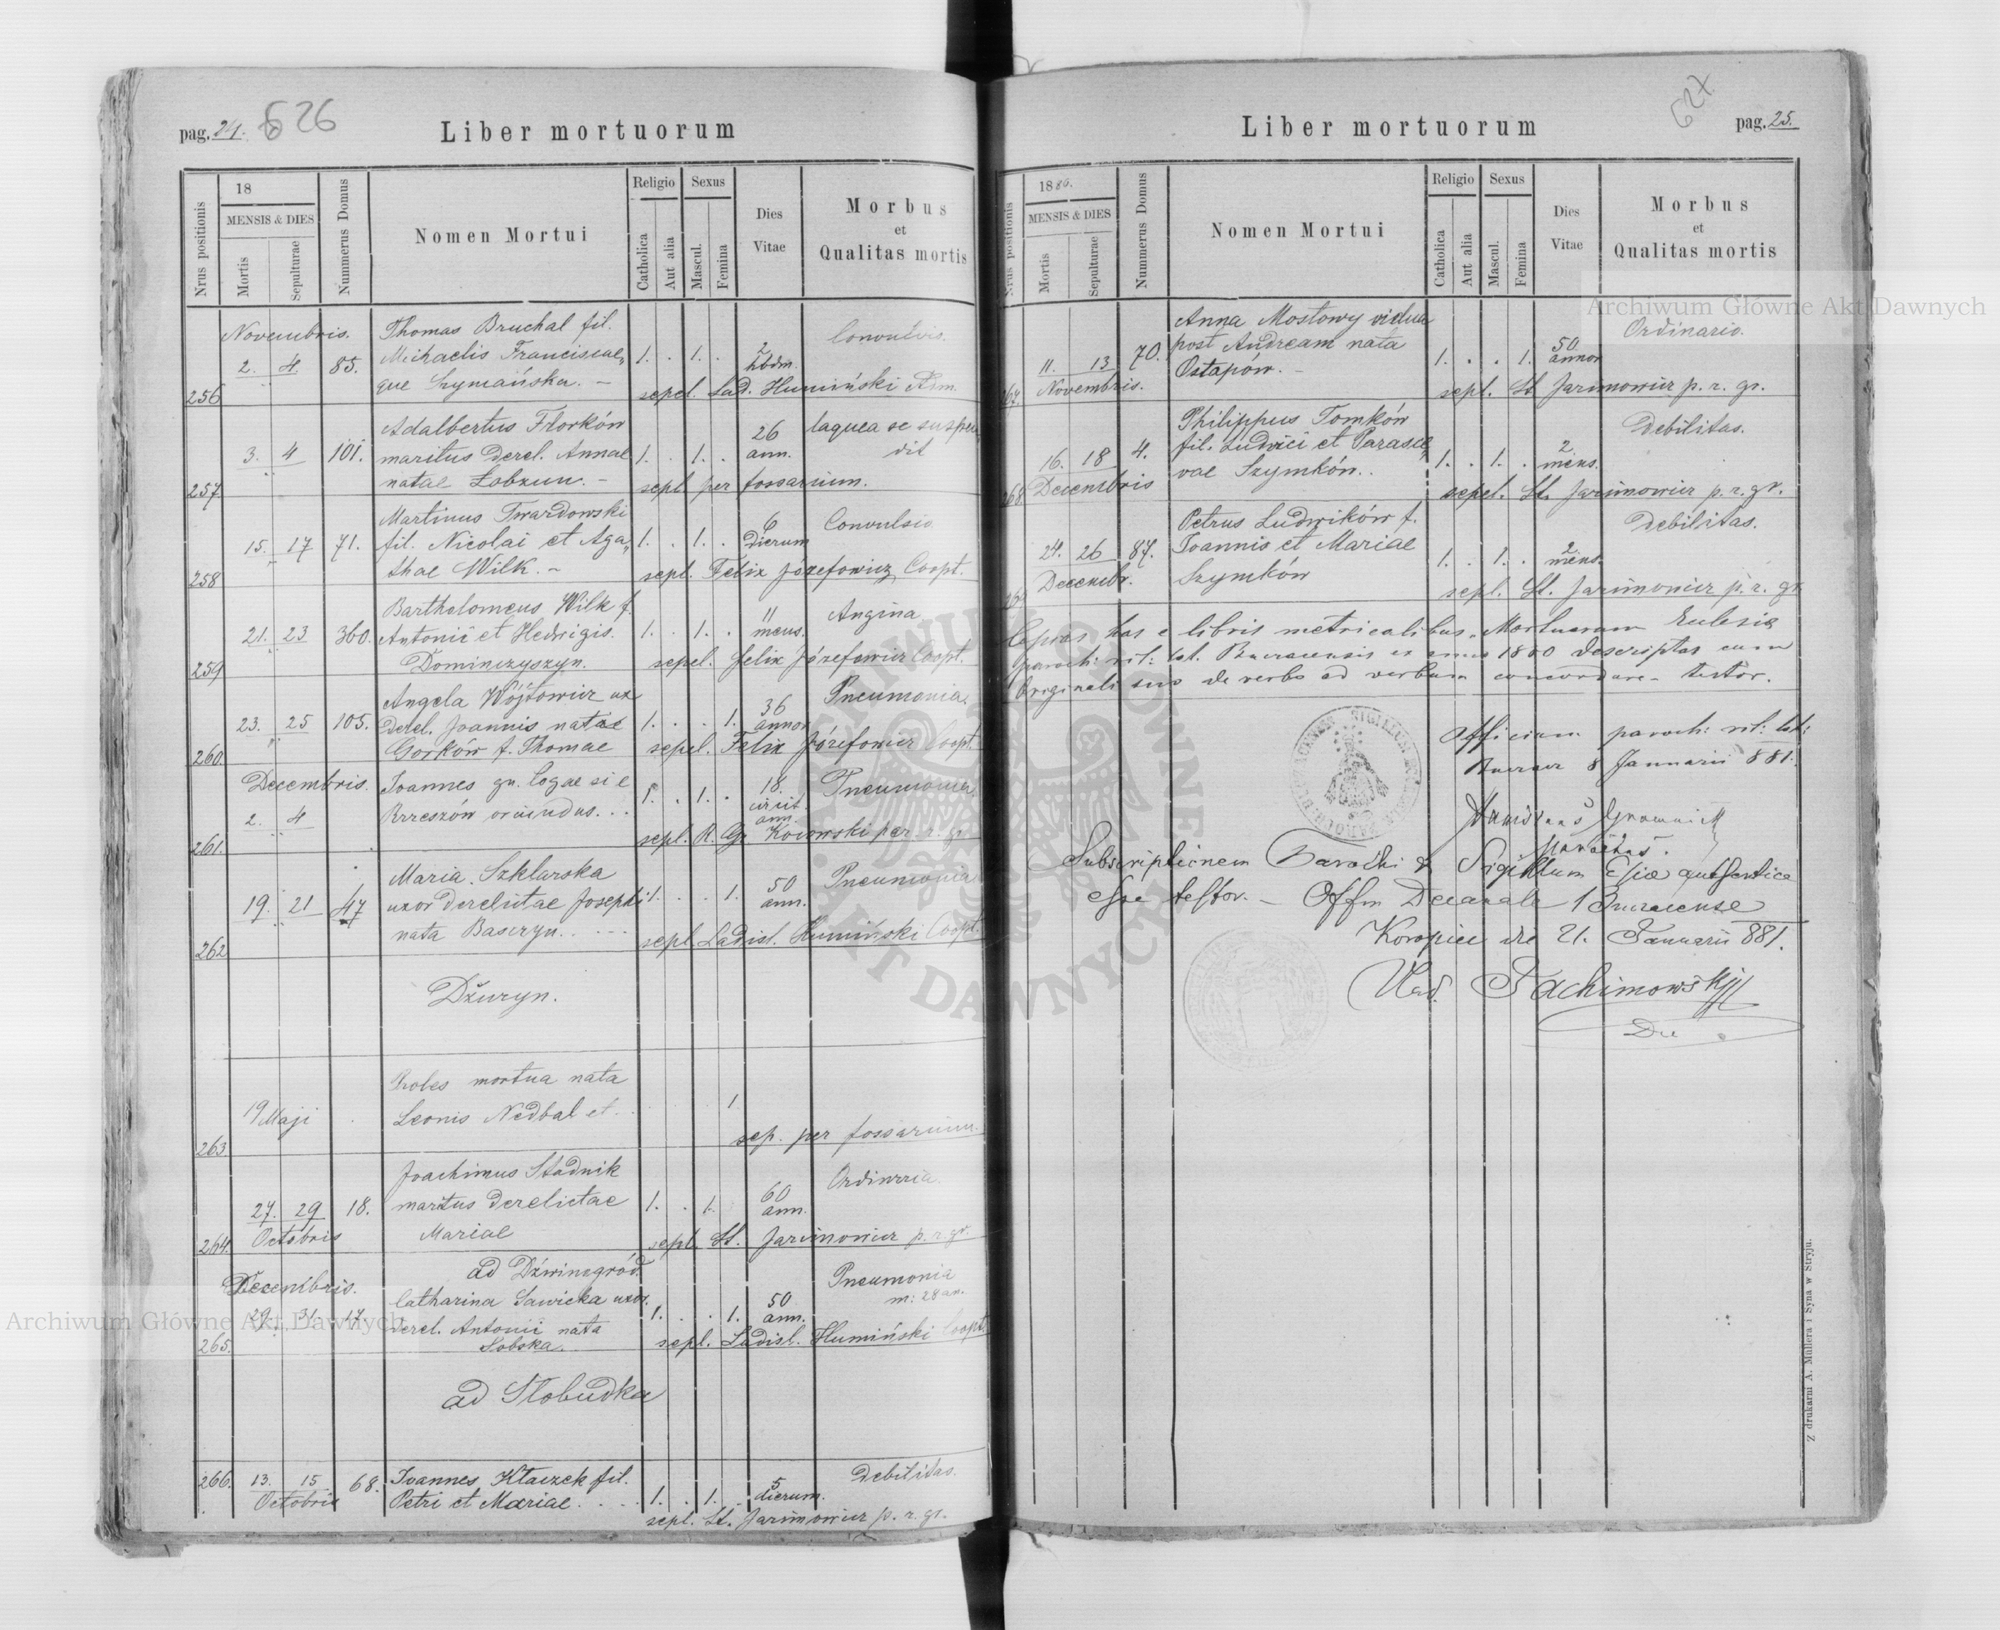 pag. 24. 626
Liber mortuorum
Nrus positionis
18
MENSIS & DIES
Mortis
Sepulturae
Nummerus Domus
Nomen Mortui
Religio
Catholica
Aut alia
Sexus
Mascul.
Femina
Dies
Vitae
Morbus
et
Qualitas mortis
Novembris. Thomas Bruchal fil. Convulsis.
2. 4. 85. Michaelis Franciscae, 1. . 1. . 2 hbdm.
256 que Szymańska. – sepel. Lad. Humiński Adm.
Adalbertus Florków laquea se suspen
3. 4 101. maritus derel. Annae 1. . 1. . 26 ann. dit
257 natae Łobzun. – sepl per fossarium.
Martinus Twardowski Convulsio
15. 17 71. fil. Nicolai et Aga, 1. . 1. . 6 dierum
258 thae Wilk. – sepl. Felix Józefowicz Coopt.
Bartholomeus Wilk f. Angina
21. 23 360. Antonii et Hedwigis. 1. . 1. . 11 mens.
259 Dominczyszyn. sepel. Felix Józefowicz Coopt.
Angela Wójtowicz ux Pneumonia
23. 25 105. derel. Joannis natae 1. . . 1. 36 annor
260 Gorków f. Thomae sepel. Felix Józefowicz Coopt.
Decembris. Joannes gn. Pneumonia
2. 4 Rzeszów oriundus. . . 1. . 1. . 18. circit. ann.
261. sepl. R. Gr. per. r. gr.
Maria Szklarska Pneumonia
19. 21 47 uxor derelictae Josephi 1. . . 1. 50 ann.
262 nata Basczyn. . . . sepl. Ladisl. Humiński Coopt.
Dżuryn.
Proles mortua nata
19 Maji Leonis Nedbal et . . 1
263 sep. per fossarium.
Joachimus Stadnik Ordinaria.
27. 29 18. maritus derelictae 1. . 1. 60 ann.
264. Octobris Mariae sepl. St. Jarimowicz p. r. gr.
Decembris. ad Dźwinogród. Pneumonia
29. 31 17. Catharina Sawicka uxor. 1. . . 1. 50 ann. m: 28 an.
derel. Antonii nata
265. Sobska. sepl. Ladisl. Humiński Coopt.
ad Słobudka
266. 13. 15 68. Joannes Ktaczek fil. Debilitas.
Octobris Petri et Mariae. . . . 1. . 1. . 5 dierum.
sepl. St. Jarimowicz p. r. gr.
627
Liber mortuorum
pag. 25.
Nrus positionis
1880.
MENSIS & DIES
Mortis
Sepulturae
Nummerus Domus
Nomen Mortui
Religio
Catholica
Aut alia
Sexus
Mascul.
Femina
Dies
Vitae
Morbus
et
Qualitas mortis
Anna Mostowy vidua Ordinario.
11. 13 70. post Andream nata 1. . . 1. 50 annor
267. Novembris. Ostapów. – sepl. St Jarimowicz p. r. gr.
Philippus Tomków Debilitas.
16. 18 4. fil. Ludvici et Parasce, 1. . 1. . 2 mens.
268 Decembris vae Szymków. . sepel. St. Jarimowicz p. r. gr.
Petrus Ludwików f. Debilitas.
24. 26 87. Joannis et Mariae 1. . 1. . 2 mens.
269 Decembr. Szymków sepl. St. Jarimowicz p. r. gr.
Copias has e libris metricalibus Mortuorum Eclesiæ
paroch: rit: lat. Buczacensis ex anno 1880 descriptas cum
Originali suo de verbo ad verbum concordare testor.
Officium paroch: rit: lat:
Buczacz 8 Januarii 881.
Stanislaus Gromnicki
parochus.
Subscriptionem Parochi & Sigillum Esiæ authentica
esse testor. – Offm Decanale Buczacense
Koropiec die 21. Januarii 881.
Vlad. Jachimowski
Archiwum Główne Akt Dawnych
Archiwum Główne Akt Dawnych
ARCHIWUM GŁÓWNE AKT DAWNYCH
Z drukarni A. Mullera i Syna w Stryju.